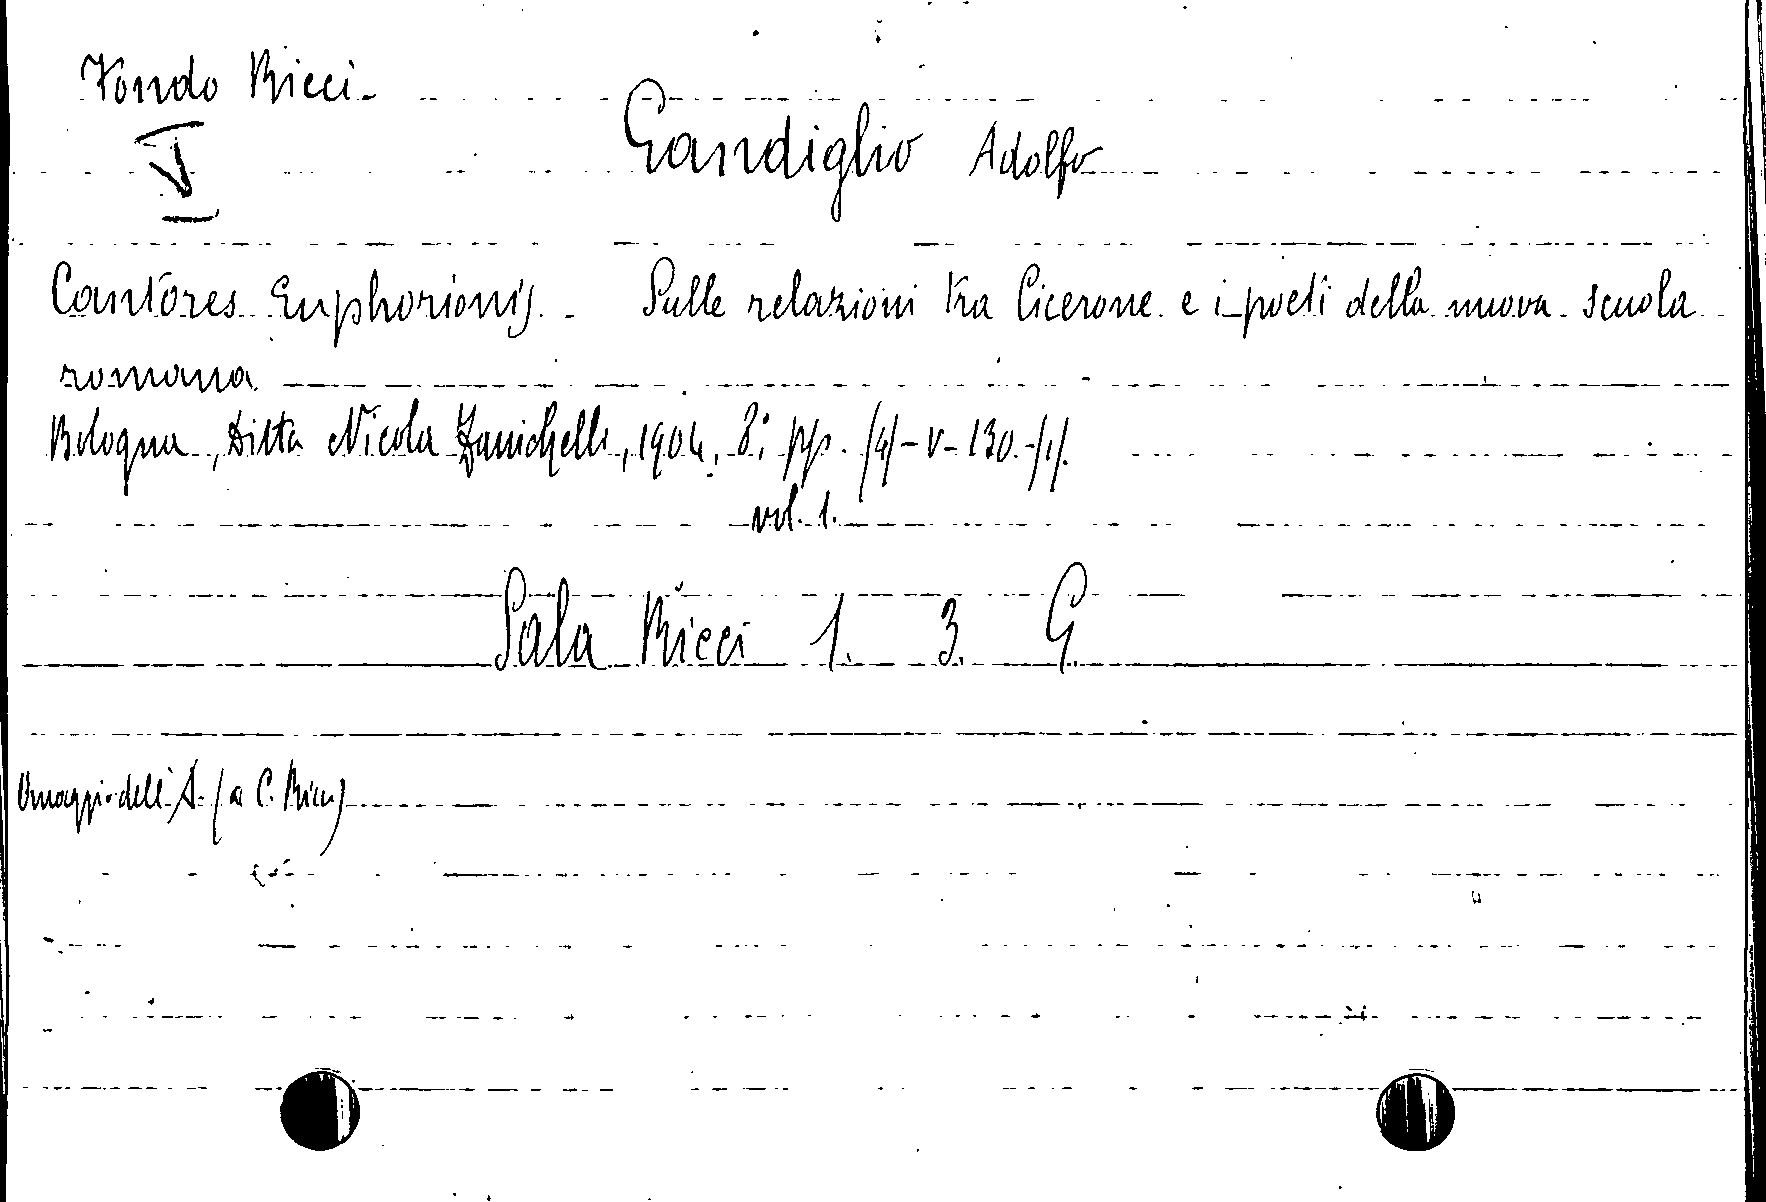 Fondo Ricci.
V
Gandiglio Adolfo
Cantores Euphorionis. - Sulle relazioni tra Cicerone e i poeti della nuova scuola
romana.
Bologna, Ditta Nicola Zanichelli, 1904, 8° pp. /4/-V-130-/1/.
vol. 1.
Sala Ricci 1. 3. G
Omaggio dell'A. (a C. Ricci)